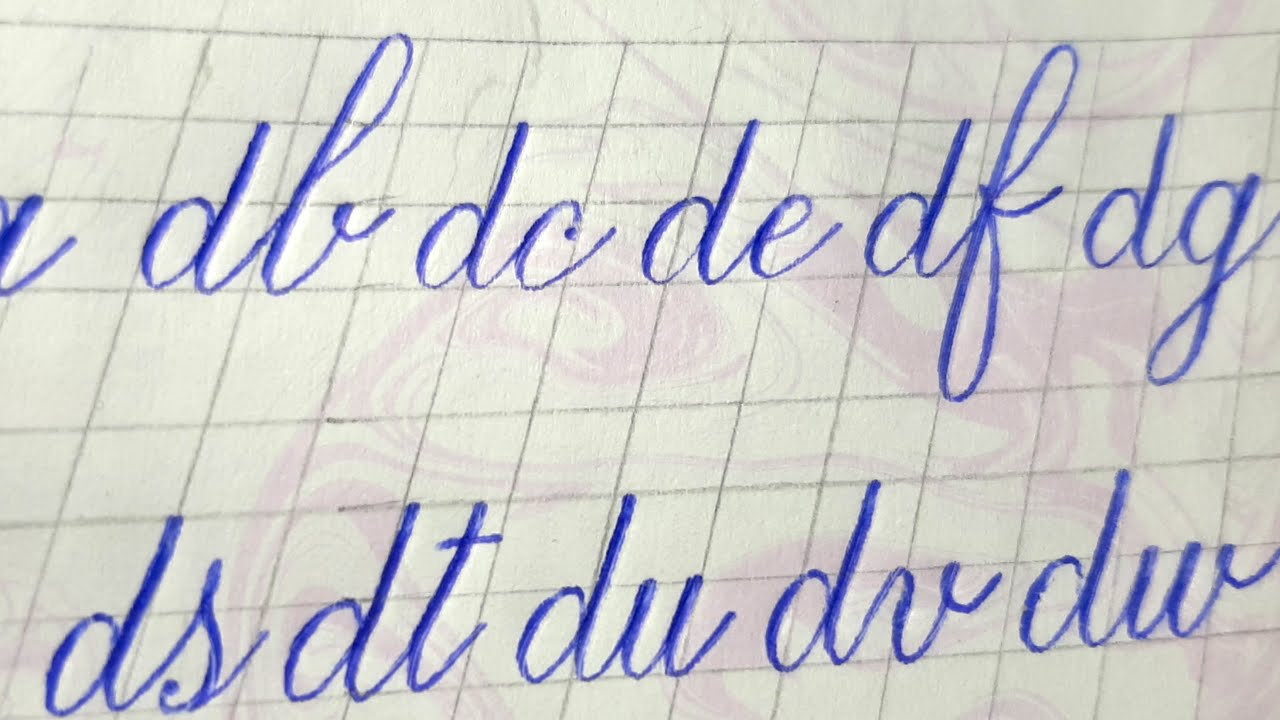 db dc de df dg
ds dt du dv dw